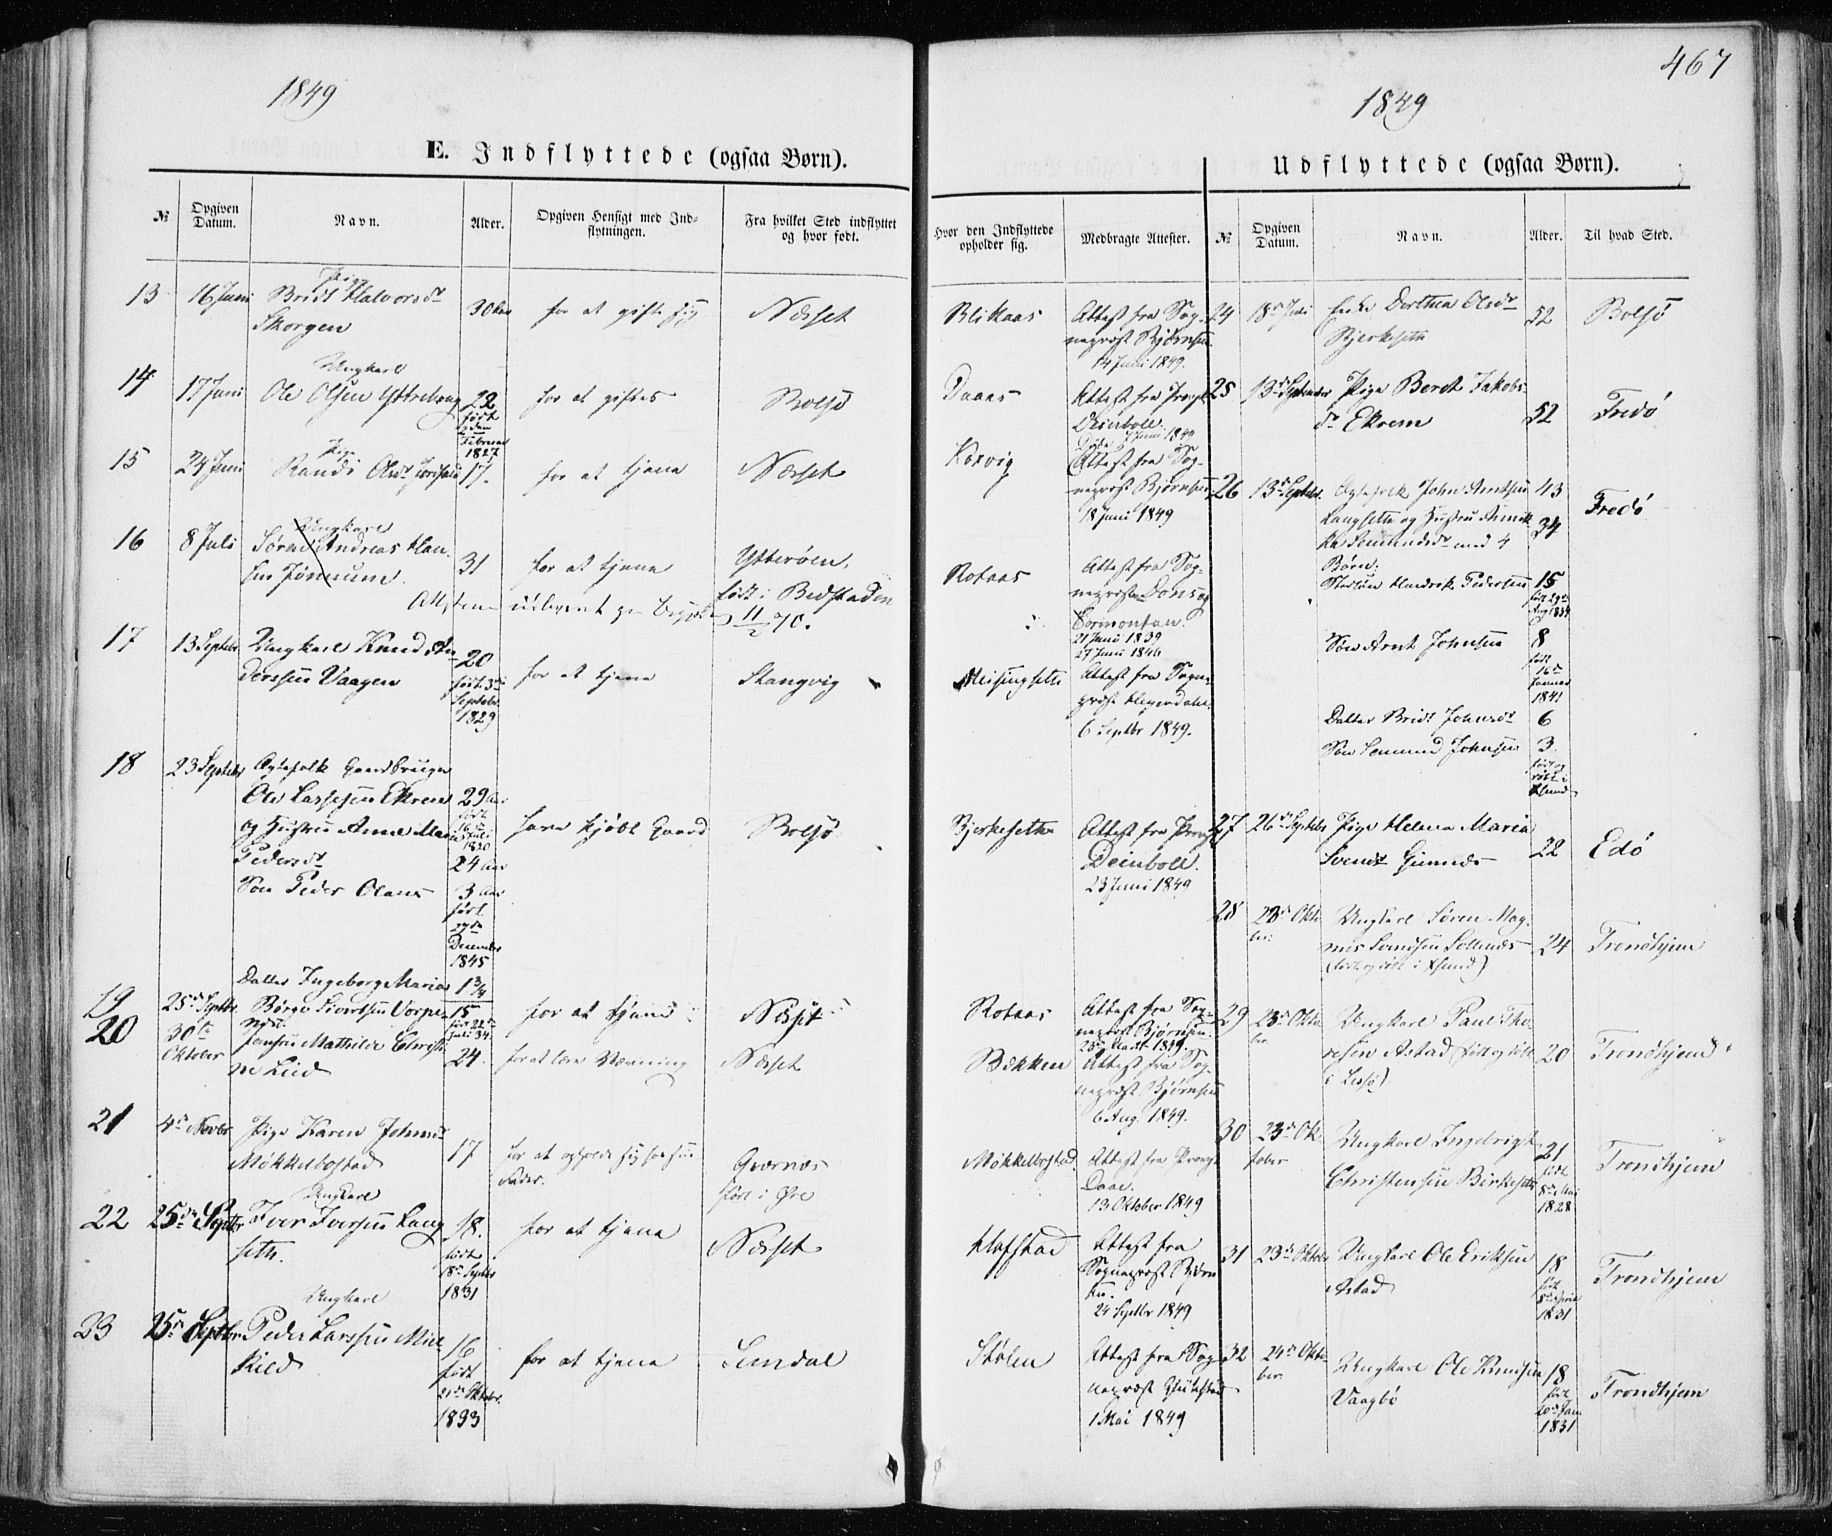 467
1849
E. Indflyttede (ogsaa Børn).
№
Opgiven Datum.
Navn.
Alder.
Opgiven Hensigt med Ind-
flytningen.
Fra hvilket Sted indflyttet
og hvor født.
Hvor den Indflyttede
opholder sig.
Medbragte Attester.
13 16 Juni Pige
Bridt Halvorsdr
Skorgen
30 Aar for at gifte sig Nesset Blikaas Attest fra Sog-
nepræst Bjørnsen
14 Juni 1849.
14 17 Juni Ungkarl
Ole Olsen
22
født
2den
Februar
1827
for at giftes Bolsø Attest fra
Deinboll
15 24 Juni Pige
Randi Olsdr
17. for at tjene Nesset Attest fra Sog-
nepræst Bjørnsen
18 Juni 1849
16 8 Juli Ungkarl
Søren Andreas Han-
sen
31 for at tjene Ytterøen,
født i Bedstaden
Rotaas Attest fra Sog-
nepræsterne
21 Juni 1839
27 Juni 1846
11/2 70.
17 13 Septbr Ungkarl Knud An-
dersen Vaagen
20
født 3die
Septebr
1829
for at tjene Stangvig Meisingseth Attest fra Sogne-
præst
6 Septbr 1849.
18 23 Septbr Ægtefolk Gaardbruger
Ole Larssen Ekrem
og Hustru Anne Maria
Pedersdr
Søn Peder Olaus
Datter Ingeborg Maria
29 Aar
født
Juli
1820
24 Aar
3 Aar
født
December
1845
1 3/4
have kjøbt Gaard Bolsø Bjerkeseth Attest fra Provst
Deinboll.
23 Juni 1849
19 25de Septbr. Børge Sivertsen
15
født 22de
Juli 34.
for at tjene Nesset Rotaas Attest fra Sog-
nepræst Bjørnsen
1849.
20 30te
Oktober
Jomfru Mathilde Christi-
ne Lied
24. for at lære Vævning Nesset Bakken Attest fra Sog-
nepræst Bjørnsen
6 Aug. 1849.
21 4de Novbr. Pige Karen Johnsdr
Møkkelbostad
17 for at opholde sig hos sin
Fader.
Gvernes
født i Øre
Møkkelbostad Attest fra Provst
Daae.
13 Oktober 1849
22 25de Septbr Ungkarl
Iver Iversen Lang-
seth.
18.
født
18de Septbr
1831
for at tjene Nesset Hafstad Attest fra
Sognepræst Bjørn-
sen.
24 Septbr 1849
23 25de Septbr Ungkarl
Peder Larssen
16
født
21de Oktober.
1833
for at tjene Sundal Stølen Attest fra Sog-
nepræst
1 Mai 1849
1849
Udflyttede (ogsaa Børn).
№
Opgiven
Datum.
Navn.
Alder.
Til hvad Sted.
24 18de Juni Enke Dorthea Olsdr
Bjerkeseth
52 Bolsø
25 13de September Pige Beret Jakobs-
dr Ekrem
52 Fredø
26 13de Septebr. Ægtefolk John Arntsen
Langseth og Hustru
med 4
Børn:
43
34
Fredø
Stedsøn Hendrik Pedersen 15
født 29de
Aug 1834
Søn Arnt Johnsen 8
født
16de
Januar
1841
Datter Bridt Johnsdr 6
Søn Semund Johnsen 3.
født og
døbt i
27 26de Septebr Pige Helena Maria
22 Edø
28 23de Okto-
ber.
Ungkarl Søren Mag-
nus Svendsen Solsnes
24 Trondhjem
29 23de Okto-
ber
Ungkarl Paul Tho-
resen Astad (født og døbt
i Lesjø)
20 Trondhjem
30 23de Ok-
tober
Ungkarl Ingebrigt
Christensen Birkeseth
21
født
8de Mai
1828
Trondhjem
31 23de Oktober Ungkarl Ole Eriksen
Astad
18
født
8de April
1831
Trondhjem
32 24de Okto-
ber
Ungkarl Ole Knudsen
Vaagbø
18
født
20de Janr
1831
Trondhjem